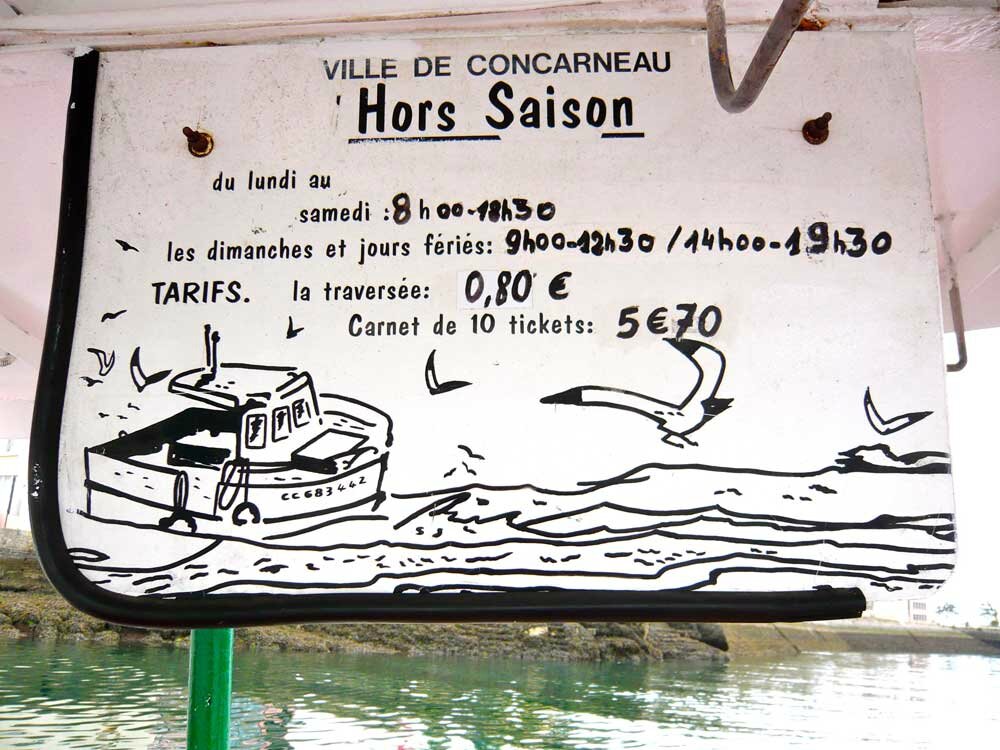 VILLE DE CONCARNEAU
Hors Saison
du lundi au
samedi : 8h00-18h30
les dimanches et jours fériés: 9h00-12h30 / 14h00-19h30
TARIFS. la traversée: 0,80 €
Carnet de 10 tickets: 5€70
CC683442